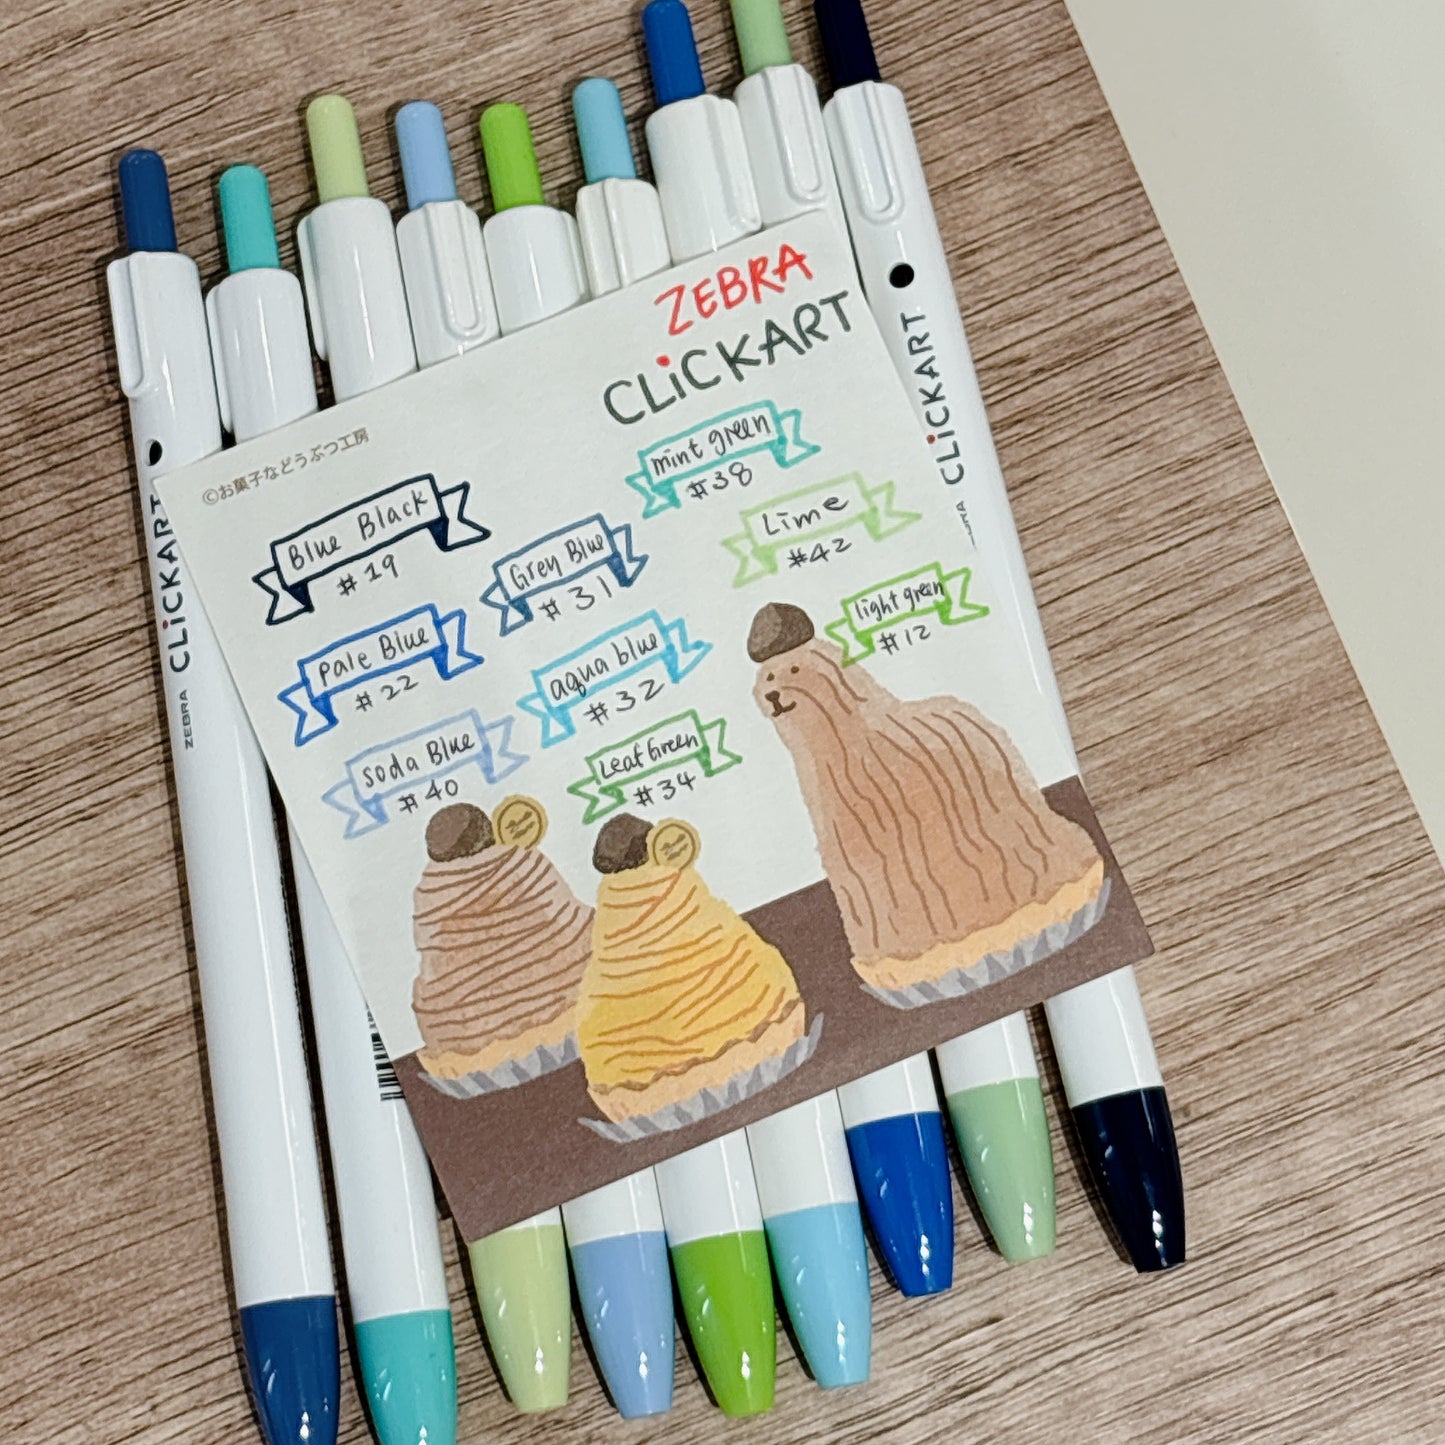 ZEBRA
CLiCKART
©お菓子などうぶつ工房
Blue Black
#19
Grey Blue
#31
mint green
#38
Lime
#42
light green
#12
Pale Blue
#22
aqua blue
#32
Soda Blue
#40
Leaf Green
#34
ZEBRA CLiCKART
CLiCKART